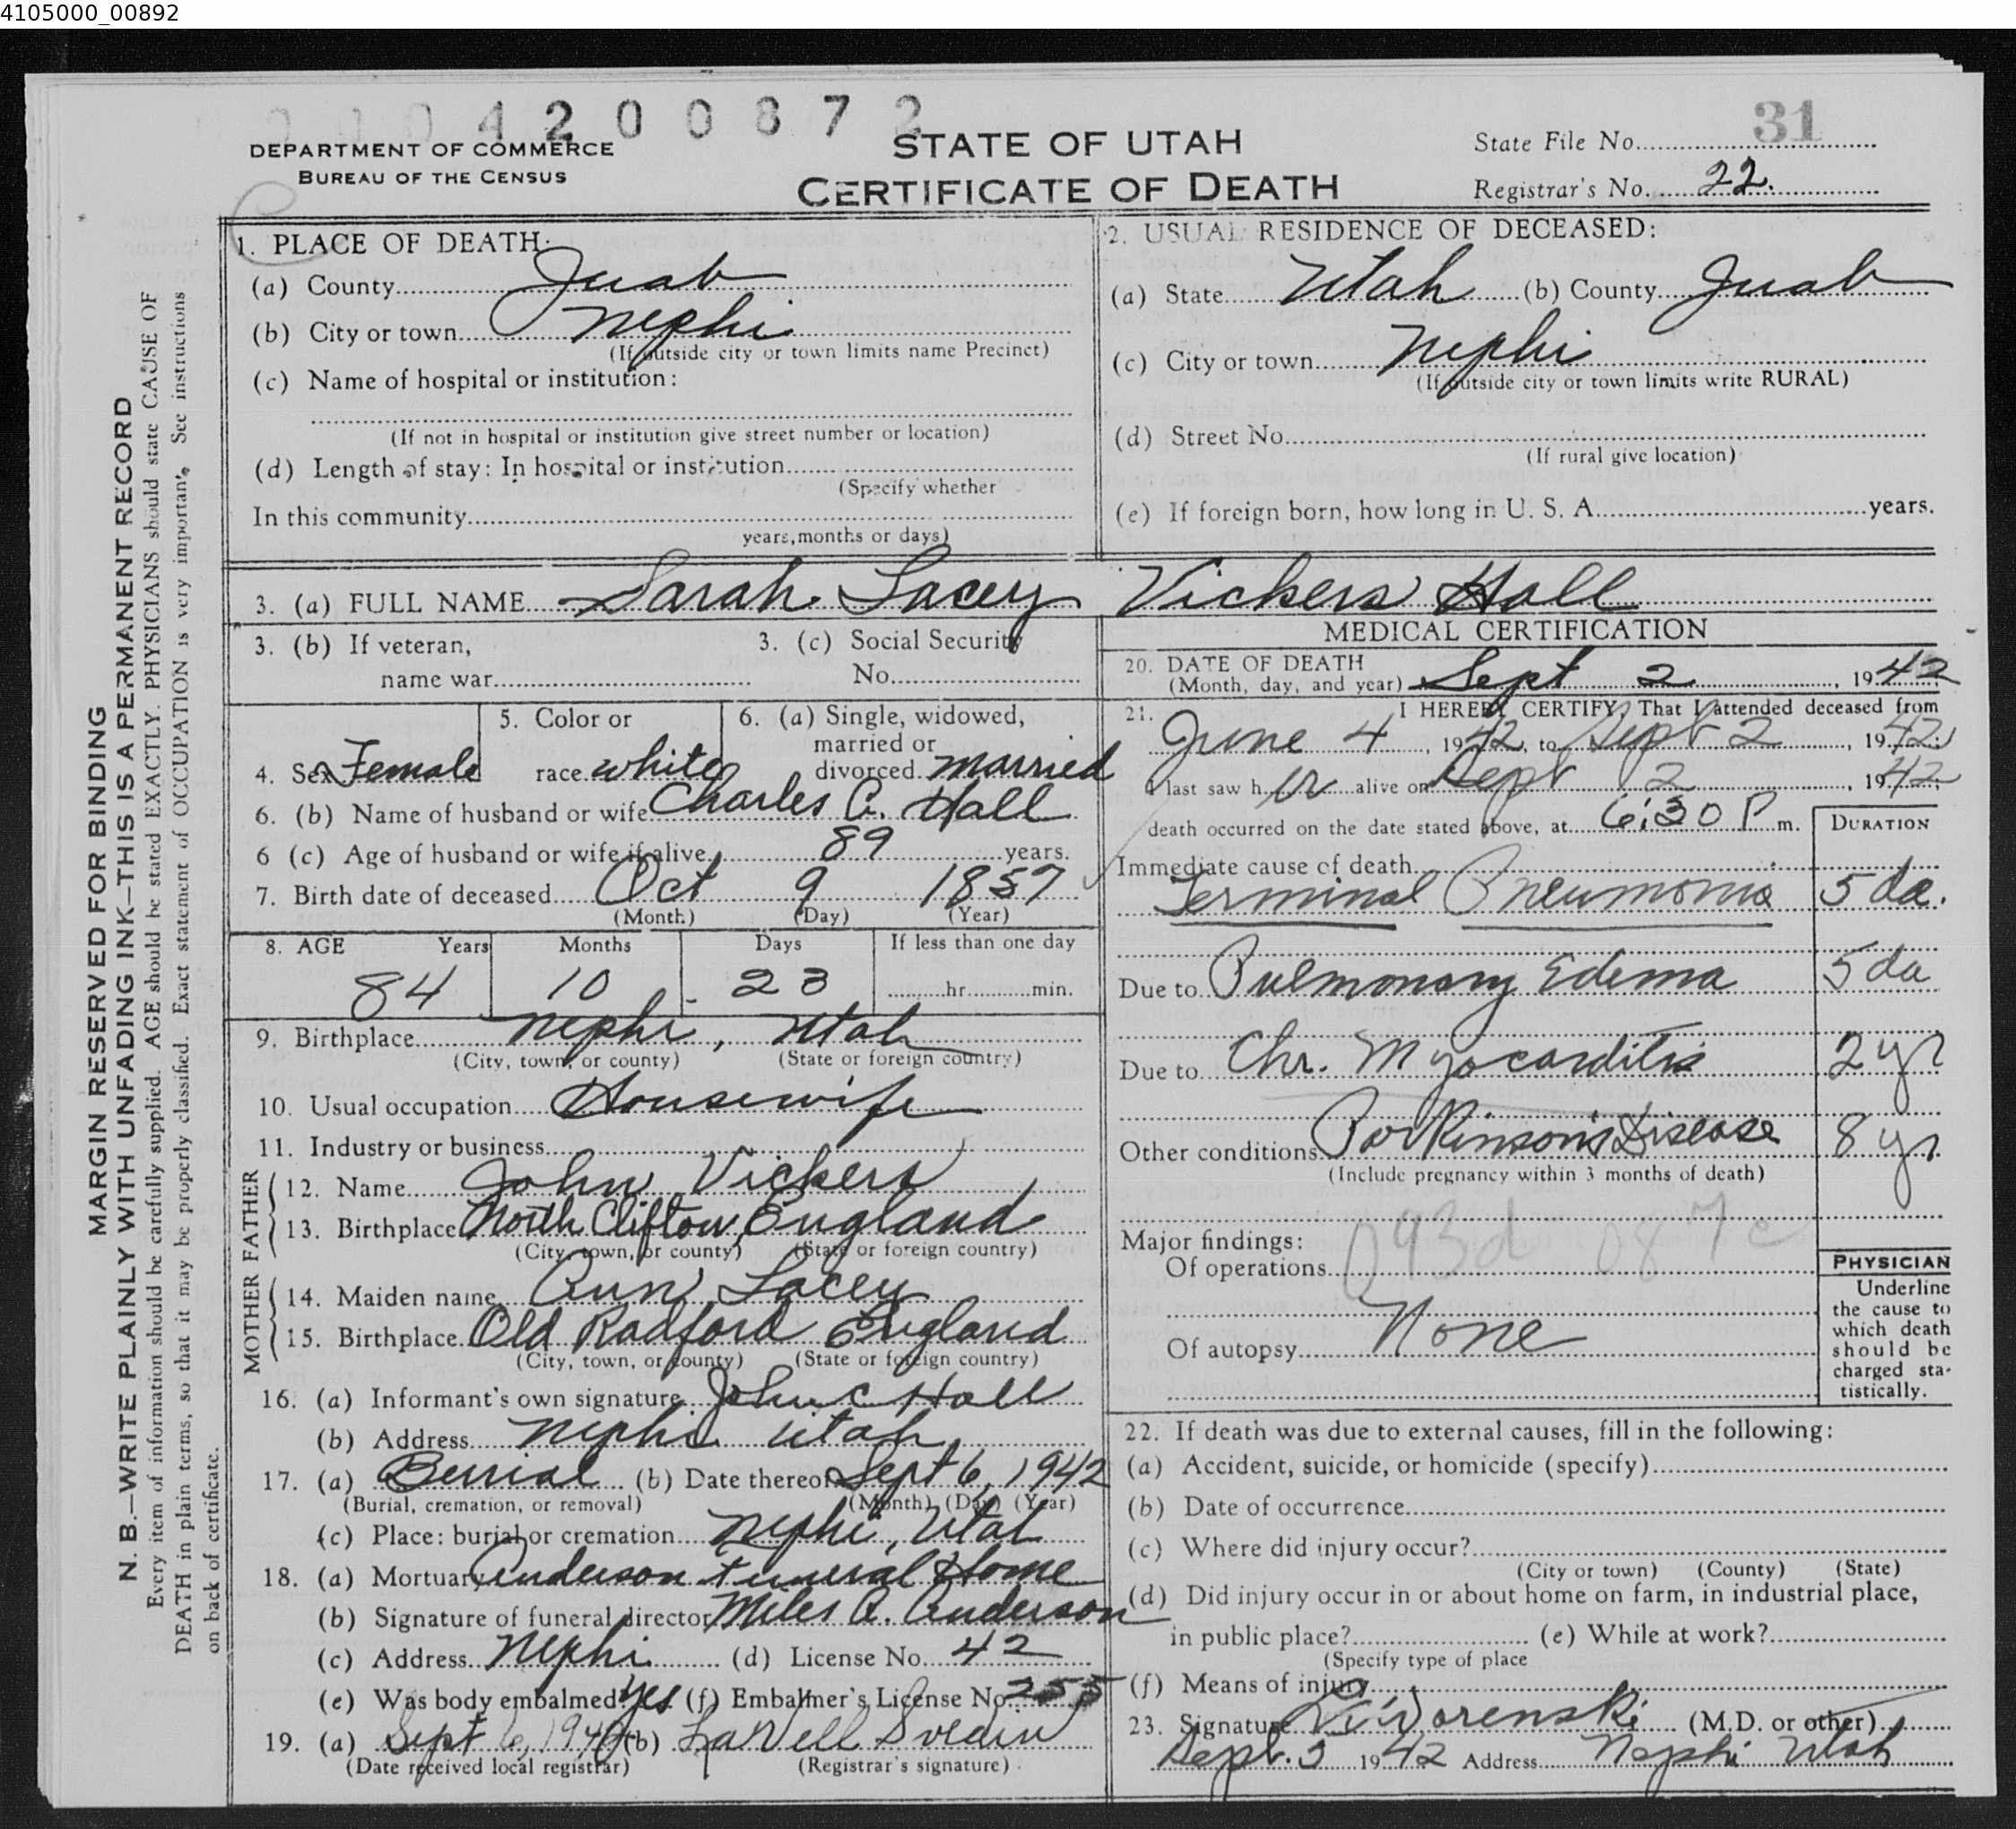 4105000_00892
0004200872
DEPARTMENT OF COMMERCE
BUREAU OF THE CENSUS
STATE OF UTAH
CERTIFICATE OF DEATH
State File No. 31
Registrar's No. 22.
MARGIN RESERVED FOR BINDING
N. B.—WRITE PLAINLY WITH UNFADING INK—THIS IS A PERMANENT RECORD
Every item of information should be carefully supplied. AGE should be stated EXACTLY. PHYSICIANS should state CAUSE OF
DEATH in plain terms, so that it may be properly classified. Exact statement of OCCUPATION is very important. See instructions
on back of certificate.
1. PLACE OF DEATH:
(a) County Juab
(b) City or town Nephi
(If outside city or town limits name Precinct)
(c) Name of hospital or institution:
(If not in hospital or institution give street number or location)
(d) Length of stay: In hospital or institution
(Specify whether
In this community
years, months or days)
2. USUAL RESIDENCE OF DECEASED:
(a) State Utah (b) County Juab
(c) City or town Nephi
(If outside city or town limits write RURAL)
(d) Street No.
(If rural give location)
(e) If foreign born, how long in U. S. A. years.
3. (a) FULL NAME Sarah Lacey Vickers Hall
3. (b) If veteran,
name war
3. (c) Social Security
No.
4. Sex Female
5. Color or
race white
6. (a) Single, widowed,
married or
divorced married
6. (b) Name of husband or wife Charles A. Hall
6 (c) Age of husband or wife if alive 89 years.
7. Birth date of deceased Oct 9 1857
(Month) (Day) (Year)
8. AGE Years Months Days If less than one day
84 10 23 hr. min.
9. Birthplace Nephi, Utah
(City, town, or county) (State or foreign country)
10. Usual occupation Housewife
11. Industry or business
FATHER
12. Name John Vickers
13. Birthplace North Clifton, England
(City, town, or county) (State or foreign country)
MOTHER
14. Maiden name Ann Lacey
15. Birthplace Old Radford England
(City, town, or county) (State or foreign country)
16. (a) Informant's own signature John C Hall
(b) Address Nephi Utah
17. (a) Burrial (b) Date thereof Sept 6, 1942
(Burial, cremation, or removal) (Month) (Day) (Year)
(c) Place: burial or cremation Nephi, Utah
18. (a) Mortuary Anderson Funeral Home
(b) Signature of funeral director Miles A. Anderson
(c) Address Nephi (d) License No. 42
(e) Was body embalmed? Yes (f) Embalmer's License No. 255
19. (a) Sept 6, 194 (b) LaVell
(Date received local registrar) (Registrar's signature)
MEDICAL CERTIFICATION
20. DATE OF DEATH
(Month, day, and year) Sept 2, 1942
21. I HEREBY CERTIFY, That I attended deceased from
June 4, 1942, to Sept 2, 1942;
I last saw h er alive on Sept 2, 1942;
death occurred on the date stated above, at 6:30 P m.
DURATION
Immediate cause of death
Terminal Pneumonia 5 da.
Due to Pulmonary Edema 5 da
Due to Chr. Myocarditis 2 yr
Other conditions Parkinson's Disease 8 yr
(Include pregnancy within 3 months of death)
093d 087c
Major findings:
Of operations
Of autopsy None
PHYSICIAN
Underline
the cause to
which death
should be
charged sta-
tistically.
22. If death was due to external causes, fill in the following:
(a) Accident, suicide, or homicide (specify)
(b) Date of occurrence
(c) Where did injury occur?
(City or town) (County) (State)
(d) Did injury occur in or about home on farm, in industrial place,
in public place? (e) While at work?
(Specify type of place
(f) Means of injury
23. Signature (M.D. or other)
Sept. 5 1942 Address Nephi Utah